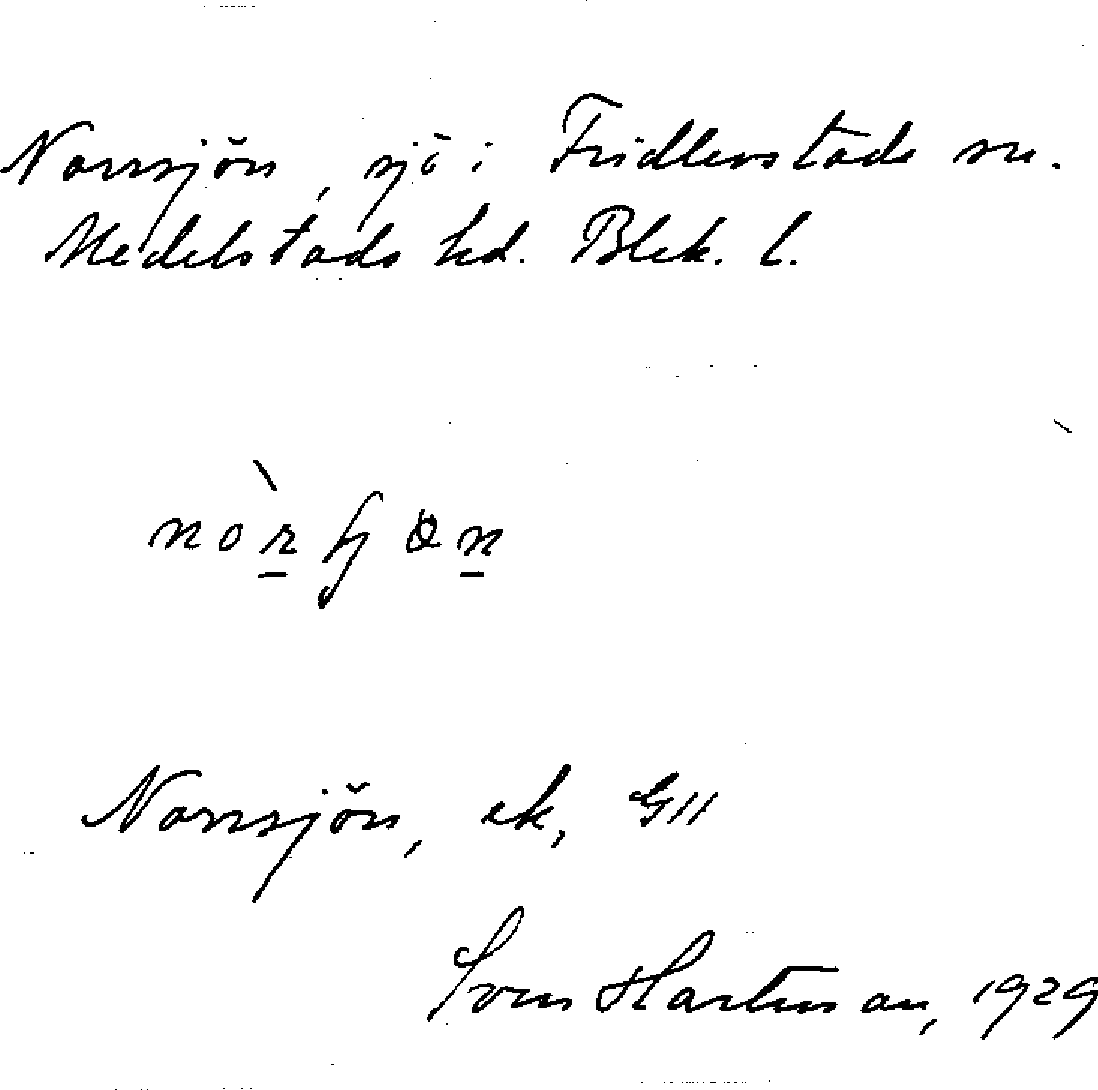 Norrsjön, sjö i Fridlevstads sn.
Medelstads hd. Blek. l.
Norrsjön, ek, G11
Sven Hartman, 1929